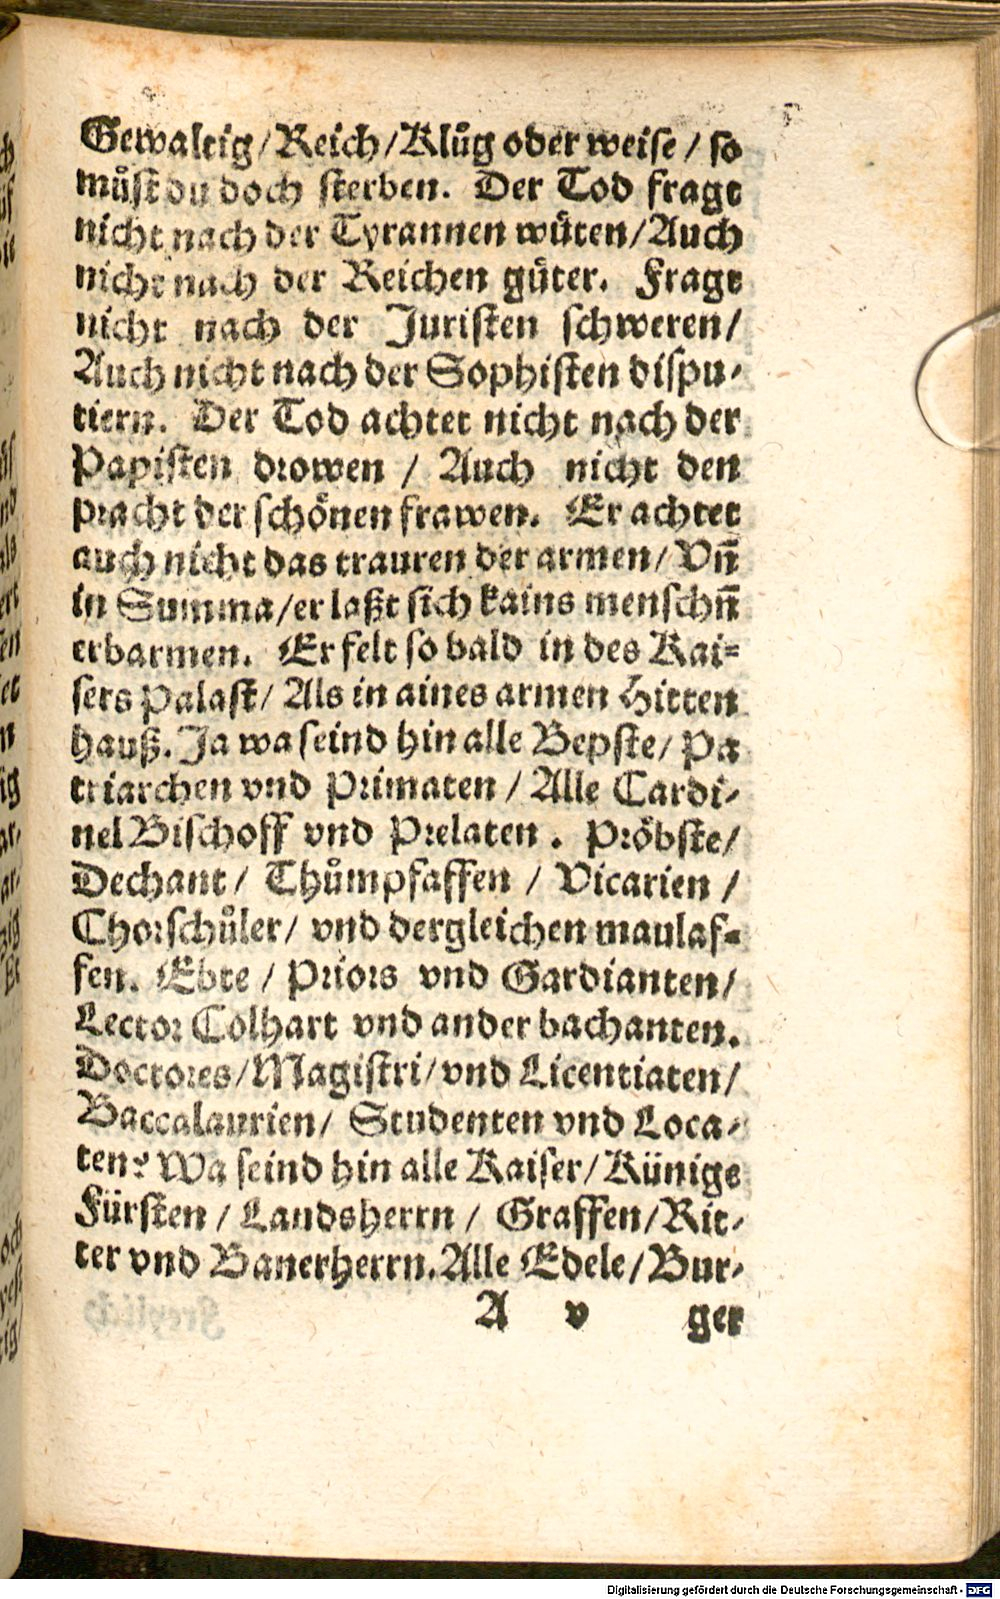 Gewaltig/Reich/Klůg oder weise/so
můst du doch sterben. Der Tod fragt
nicht nach der Tyrannen wůten/Auch
nicht nach der Reichen gůter. Fragt
nicht nach der Juristen schweren/
Auch nicht nach der Sophisten dispu-
tiern. Der Tod achtet nicht nach der
Papisten drowen / Auch nicht den
pracht der schönen frawen. Er achtet
auch nicht das trauren der armen/ Vñ
in Summa/er laßt sich kains menschñ
erbarmen. Er felt so bald in des Kai=
sers Palast/ Als in aines armen Hitten
hauß. Ja wa seind hin alle Bepste/ Pa
triarchen vnd Primaten / Alle Cardi-
nel Bischoff vnd Prelaten . Pröbste/
Dechant/ Thůmpfaffen / Vicarien /
Chorschůler/ vnd dergleichen maulaf=
fen. Ebte / Priors vnd Gardianten/
Lector Colhart vnd ander bachanten.
Doctores/Magistri/vnd Licentiaten/
Baccalaurien/ Studenten vnd Loca-
ten? Wa seind hin alle Kaiser/Künige
Fürsten / Landsherrn / Graffen/Rit-
ter vnd Banerherrn. Alle Edele/Bur-
A v ger
Digitalisierung gefördert durch die Deutsche Forschungsgemeinschaft - DFG